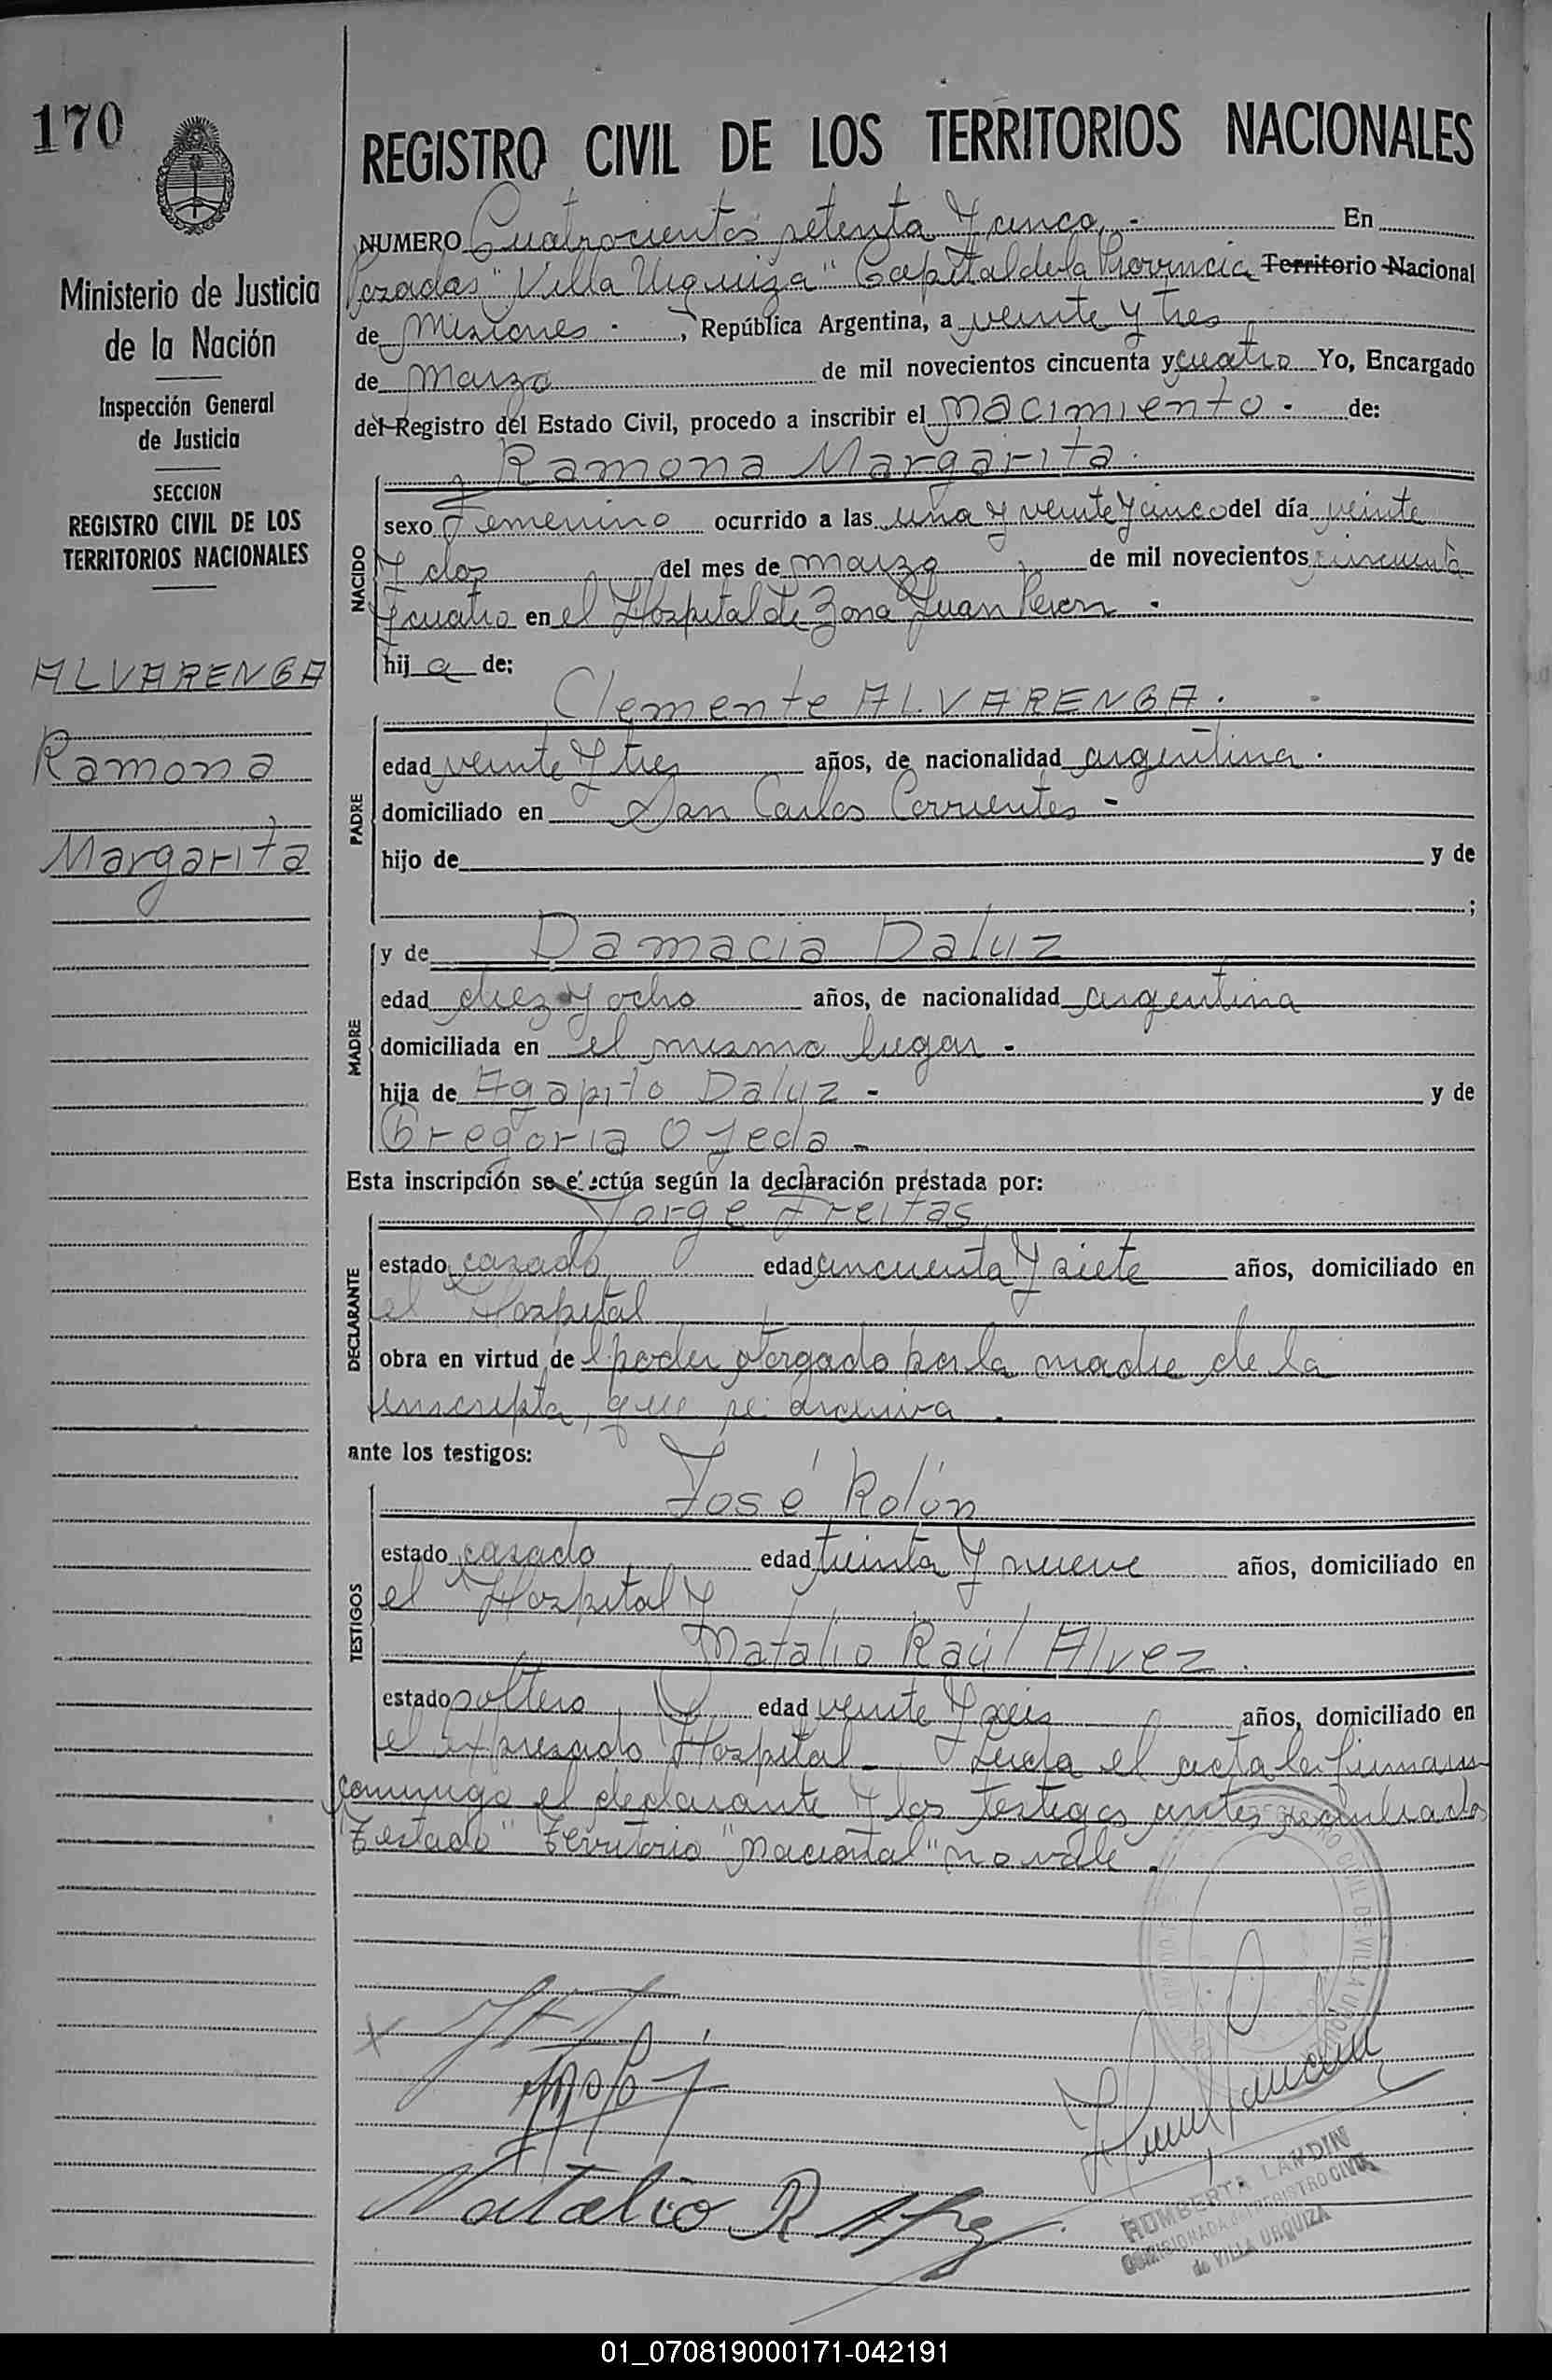 170
REGISTRO CIVIL DE LOS TERRITORIOS NACIONALES
Ministerio de Justicia
de la Nación
Inspección General
de Justicia
SECCION
REGISTRO CIVIL DE LOS
TERRITORIOS NACIONALES
ALVARENGA
Ramona
Margarita
NUMERO Cuatrocientos setenta y cinco.- En
Posadas "Villa Urquiza" Capital de la Provincia Territorio Nacional
de Misiones - , República Argentina, a veinte y tres
de Marzo de mil novecientos cincuenta y cuatro Yo, Encargado
del Registro del Estado Civil, procedo a inscribir el nacimiento - de:
Ramona Margarita.
NACIDO
sexo femenino ocurrido a las una y veinte y cinco del día veinte
y dos del mes de marzo de mil novecientos cincuenta
y cuatro en el Hospital de Zona Juan Peron -
hija de:
Clemente ALVARENGA.
PADRE
edad veinte y tres años, de nacionalidad argentina.
domiciliado en San Carlos Corrientes -
hijo de y de
;
MADRE
y de Damacia Daluz
edad diez y ocho años, de nacionalidad argentina
domiciliada en el mismo lugar -
hija de Agapito Daluz - y de
Gregoria Ojeda -
Esta inscripción se efectúa según la declaración prestada por:
Jorge Freitas
DECLARANTE
estado casado edad cincuenta y siete años, domiciliado en
el Hospital
obra en virtud de l poder otorgado por la madre de la
inscripta, que se archiva.
ante los testigos:
José Rolón
TESTIGOS
estado casado edad treinta y nueve años, domiciliado en
el Hospital y
Natalio Raúl Alvez.
estado soltero edad veinte y seis años, domiciliado en
el expresado Hospital - Leida el acta la firman
conmigo el declarante y los testigos antes nombrados
Testado "Territorio "Nacional" no vale.
Natalio R Alvez
HUMBERTA LANDIN
COMISIONADA del REGISTRO CIVIL
de VILLA URQUIZA
01_070819000171-042191